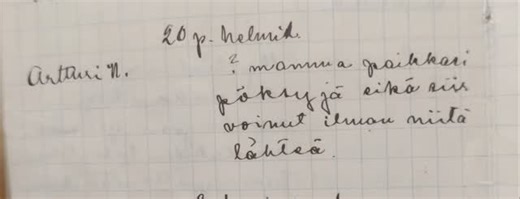 20 p. helmik.
Artturi N. ? mamma paikkasi
pöksyjä eikä siis
voinut ilman niitä
lähteä.